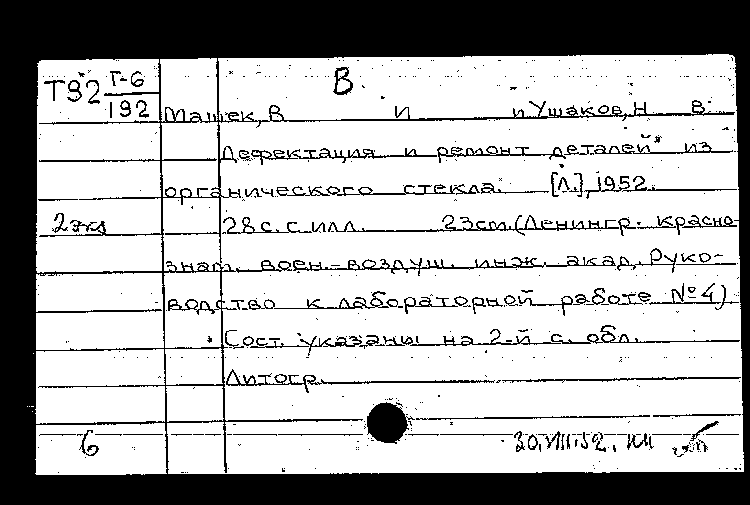 Т92 Т-6/192
В.
Машек, В И и Ушаков, Н В.
Дефектация и ремонт деталей из
органического стекла. [Л.], 1952.
2 экз 28 с. с илл. 23 см. (Ленингр. красно-
знам. воен.-воздуш. инж. акад. Руко-
водство к лабораторной работе № 4)
Сост. указаны на 2-й с. обл.
Литогр.
6 30.VIII.52.